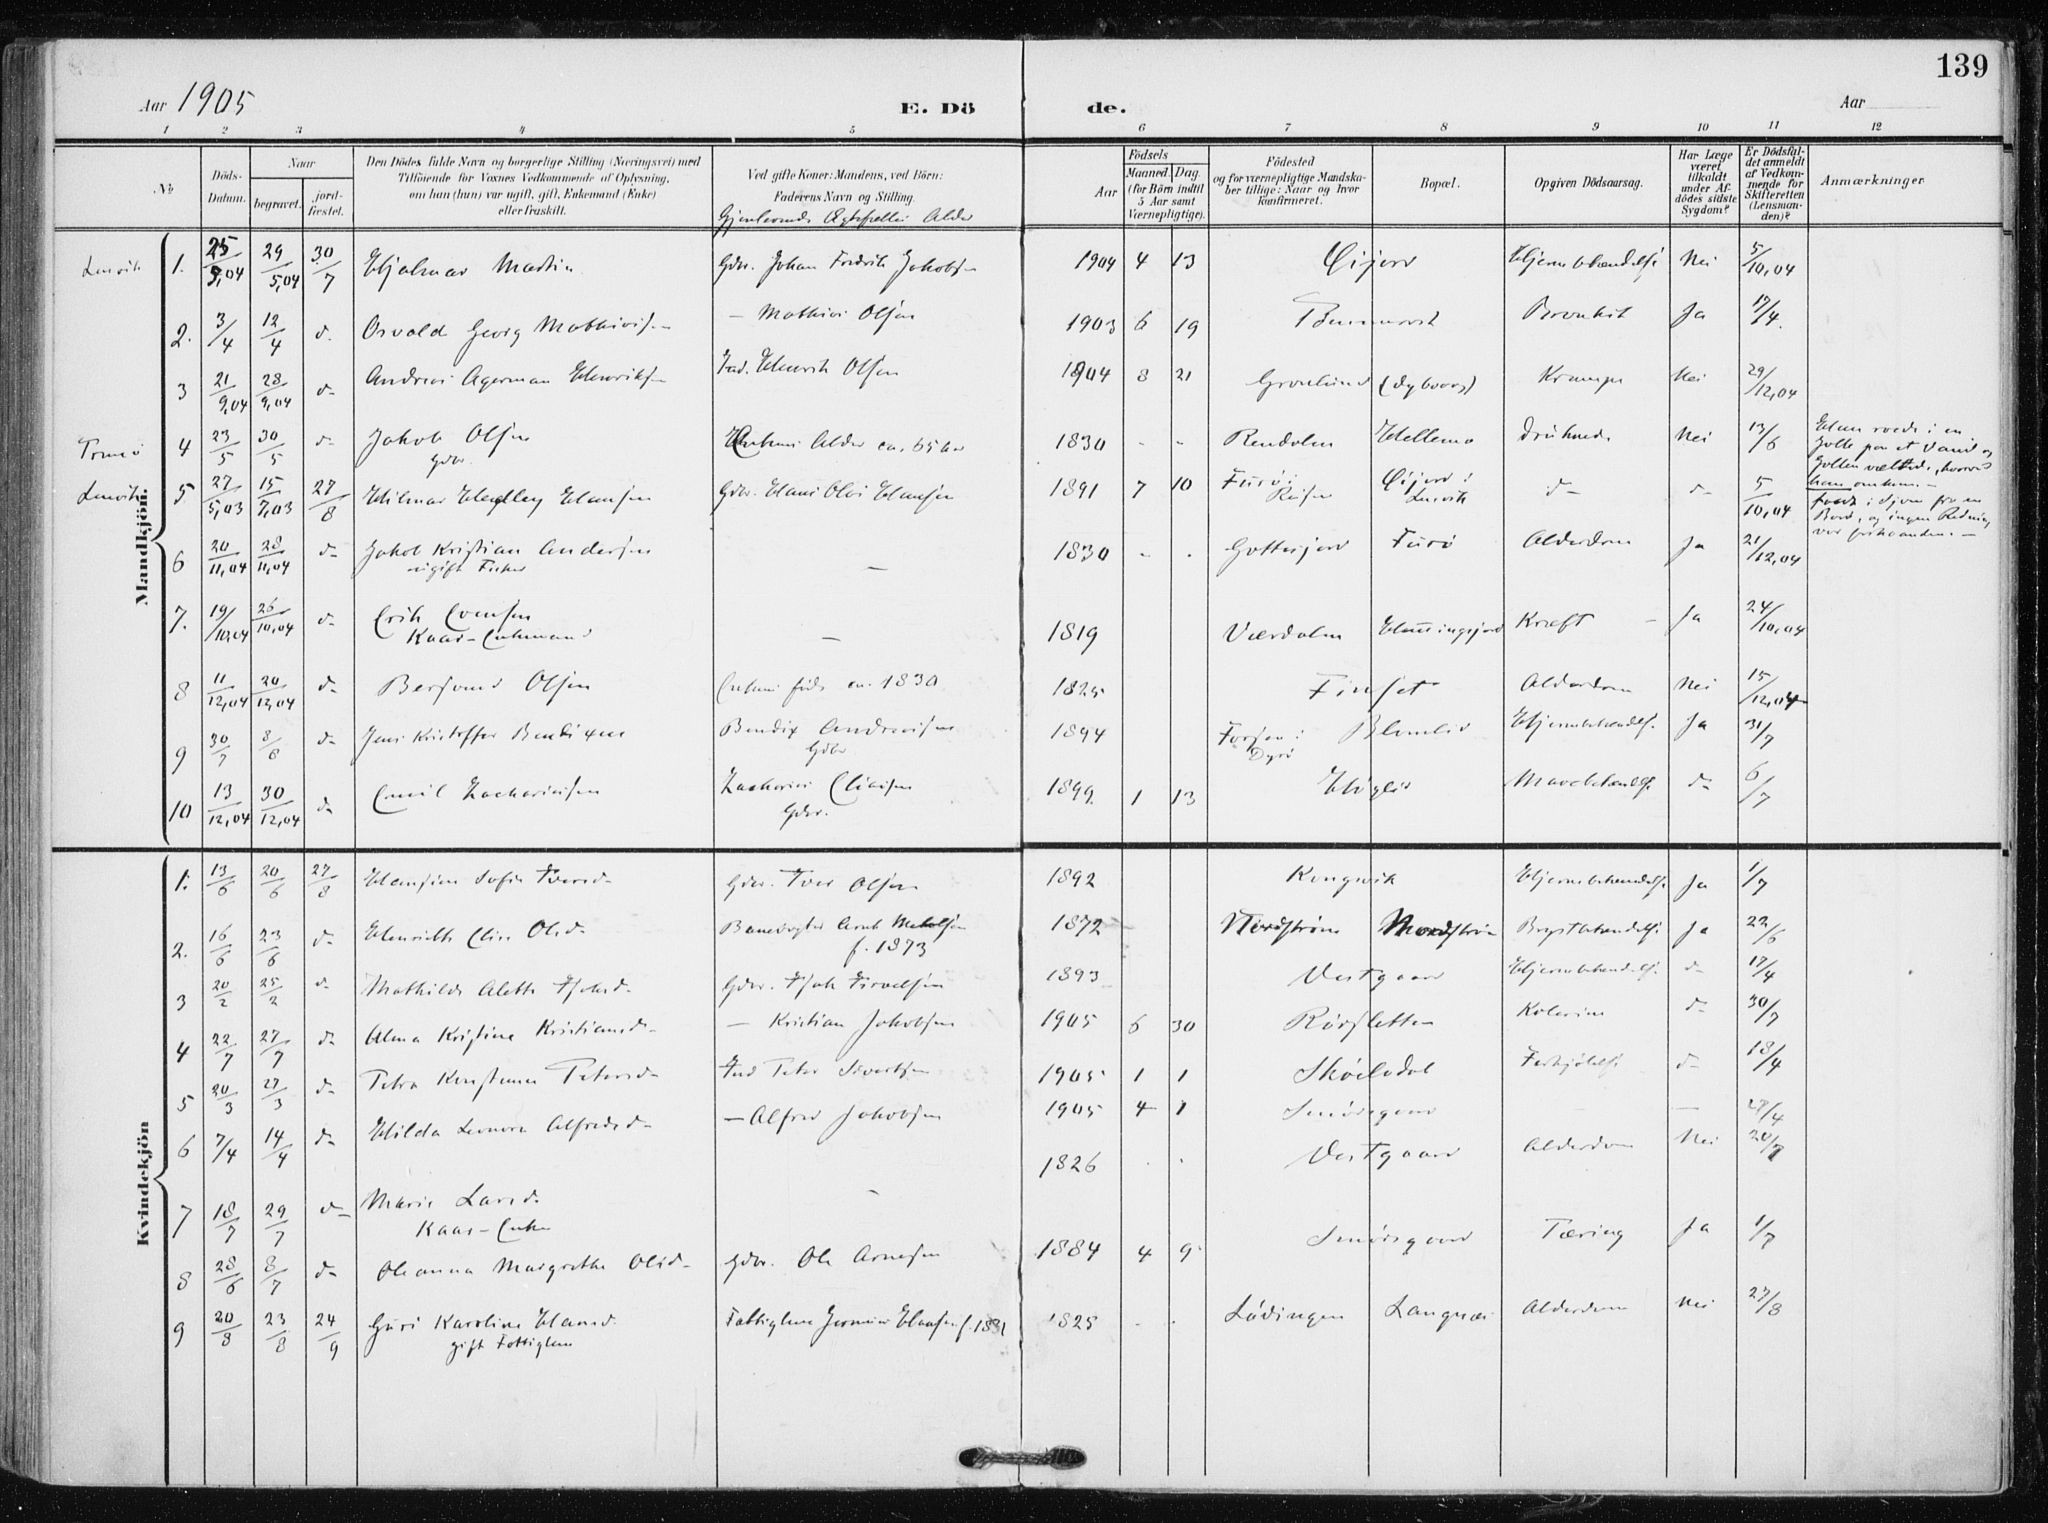 139
Aar 1905 E. Dö de. Aar
1 2 3 4 5 6 7 8 9 10 11 12
№
Döds-Datum.
Naar
begravet.
jord-fæstet.
Den Dödes fulde Navn og borgerlige Stilling (Næringsvei) med
Tilföiende for Voxnes Vedkommende af Oplysning,
om han (hun) var ugift, gift, Enkemand (Enke)
eller fraskilt.
Ved gifte Koner: Mandens, ved Börn:
Faderens Navn og Stilling.
Gjenlevende Ægtefælles Alder
Aar
Födsels
Maaned. Dag.
(for Börn indtil
5 Aar samt
Værnepligtige).
Födested
og for værnepligtige Mandska-
ber tillige: Naar og hvor
konfirmeret.
Bopæl.
Opgiven Dödsaarsag.
Har Læge
været
tilkaldt
under Af-
dödes sidste
Sygdom?
Er Dödsfal-
det anmeldt
af Vedkom-
mende for
Skifteretten
(Lensman-
den)?
Anmærkninger
Mandkjön.
Lenvik 1. 25/5,04 29/5,04 30/7 Hjalmar Martin Gdbr. Johan Fredrik Jakobsen 1904 4 13 Øijord Hjernebetændelse Nei 5/10,04
2. 3/4 12/4 d. Osvald Georg Mathisen — Mathias Olsen 1903 6 19 Bronkit Ja 17/4.
3 21/9,04 28/9,04 d- Andreas Agerman Henriksen Ind. Henrik Olsen 1904 8 21 Grønlund (Dybvaag) Krampe Nei 29/12,04
Tromsø 4 23/5 30/5 d- Jakob Olsen Enkens Alder ca. 65 Aar 1830 - - Rendalen Hellemo druknede Nei 13/6 Han roede i en
Gdbr. Jolle paa et Vand og
Jollen væltede, hvorved
han omkom. —
Lenvik 5 27/5,03 15/7,03 27/8 Hilmar Hansen Gdbr. Hans Olai Hansen 1891 7 10 Furø i Reisen Øijord i Lenvik d- d- 5/10,04 faldt i Sjøen fra en
Baad, og ingen Redning
var forhaanden. —
6 20/11,04 28/11,04 d- Jakob Kristian Andersen — 1830 - - Gottesjord Furø Alderdom Ja 21/12,04
ugift Fisker
7. 19/10,04 26/10,04 d- Erik Evensen — 1819 Værdalen Kræft - Ja 24/10,04
Kaar-Enkemand
8 11/12,04 20/12,04 d- Bersvend Olsen Enkens føds ca. 1830 1825 Finset Alderdom Nei 15/12,04
9 30/7 8/8 d- Jens Kristoffer Bendixen Bendix Andreassen 1894 Forsøen i Dyrø Blomlid Hjernebetændelse. Ja 31/7
Gdbr
10 13/12,04 30/12,04 d- Emil Zachariassen Zacharias Eliassen 1899 1 13 Høglid Mavebetændelse d- 6/7
Gdbr.
Kvindekjön
1. 13/6 20/6 27/8 Hansine Sofie Iversd. Gdbr. Iver Olsen 1892 Kongsvik Hjernebetændelse Ja 1/7
2. 16/6 23/6 d- Henriette Elise Olsd. Banevogter Arnt f. 1873 1872 Nordstrøm Nordstrøm Brystbetændelse Ja 22/6
3 20/2 25/2 d- Mathilde Alette Gdbr. 1893 Vestgaard Hjernebetændelse. d- 17/4
4 22/7 27/7 d- Alma Kristine Kristiansd- — Kristian Jakobsen 1905 6 30 Rørsletten Kolerine d- 30/7
5 20/3 27/3 d- Petra Konstanse Petersd- Ind Peter Sivertsen 1905 1 1 Skøelvdal Forkjølelse d- 18/4
6 7/4 14/4 d- Hilda Leonora Alfredsd- — Alfred Jakobsen 1905 4 1 Smørsgaard — 27/4
7 18/7 29/7 d- Marie Larsd. - 1826 . . Vestgaard Alderdom Nei 20/7
Kaar-Enke
8 28/6 8/7 d- Oleanna Margrethe Olsd- Gdbr. Ole Arnesen 1884 4 9 Smørsgaard Tæring Ja 1/7
9 20/8 23/8 24/9 Guri Karoline Hansd. Fattiglem Hansen f. 1831 1825 - - Lødingen Langnæs Alderdom Nei 27/8
gift Fattiglem